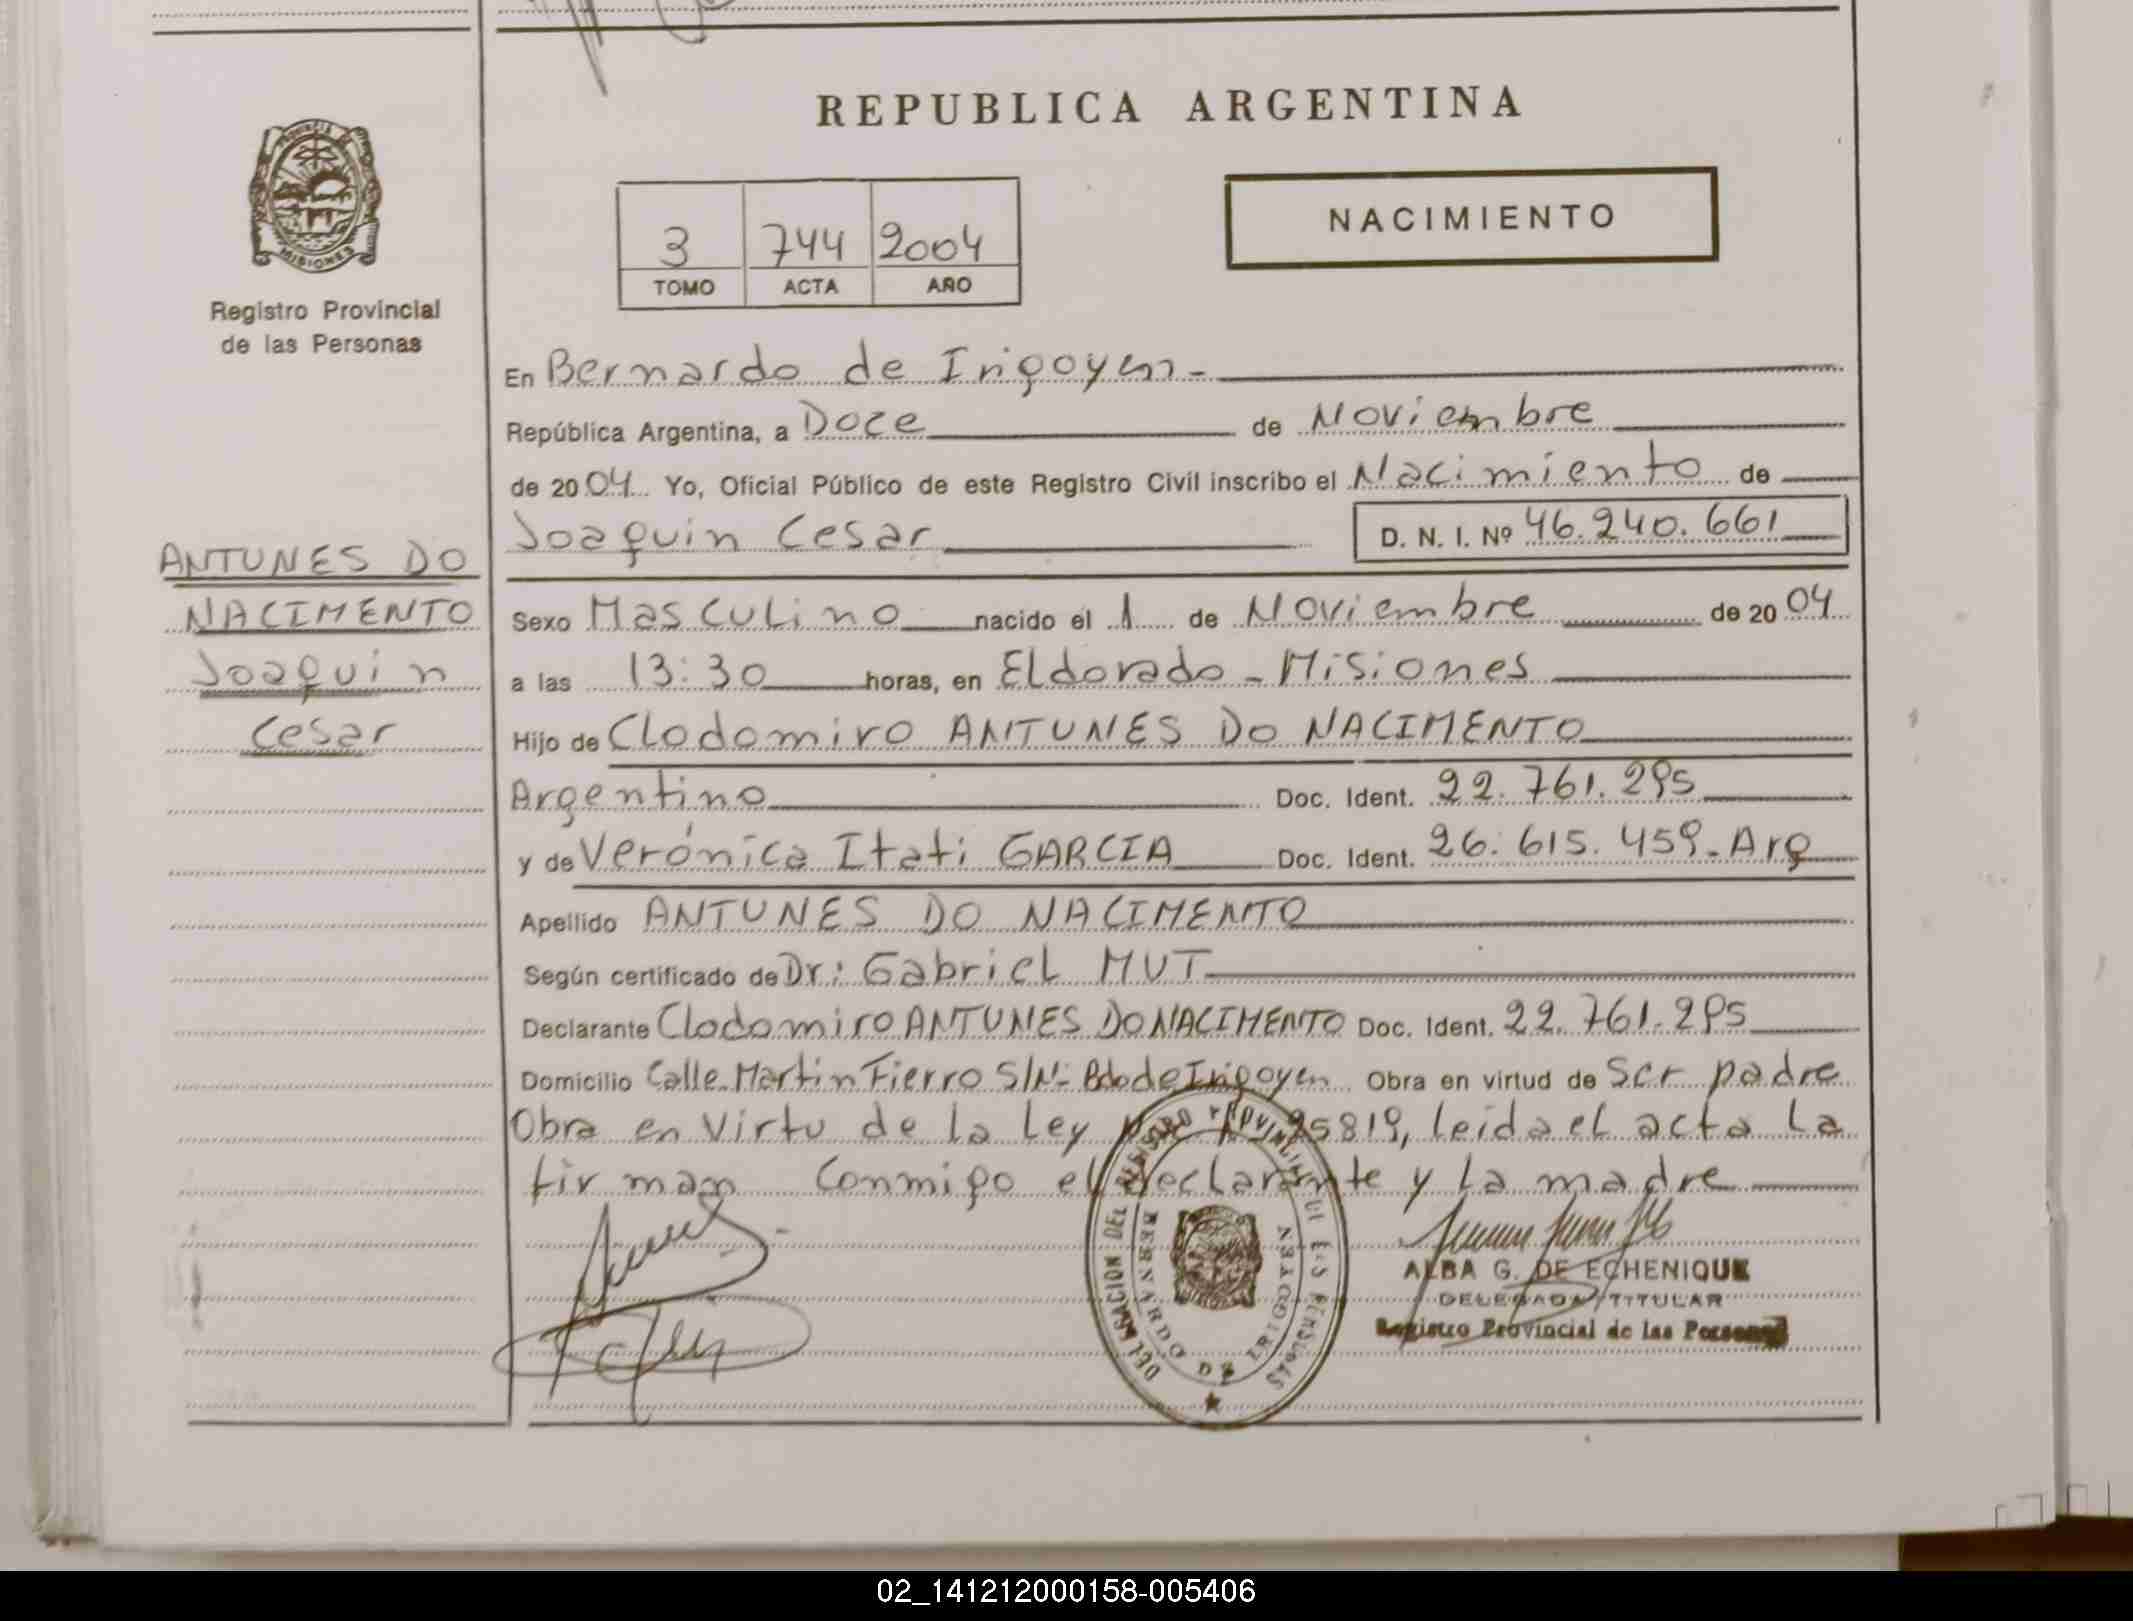 REPUBLICA ARGENTINA
PROVINCIA
MISIONES
Registro Provincial
de las Personas
3 744 2004
TOMO ACTA AÑO
NACIMIENTO
En Bernardo de Irigoyen-
República Argentina, a Doce de Noviembre
de 2004 Yo, Oficial Público de este Registro Civil inscribo el Nacimiento de
Joaquin Cesar D. N. I. Nº 46.240.661
ANTUNES DO
NACIMENTO
Joaquin
Cesar
Sexo Masculino nacido el 1 de Noviembre de 2004
a las 13:30 horas, en Eldorado - Misiones
Hijo de Clodomiro ANTUNES DO NACIMENTO
Argentino Doc. Ident. 22.761.295
y de Verónica Itati GARCIA Doc. Ident. 26.615.459- Arg
Apellido ANTUNES DO NACIMENTO
Según certificado de Dr: Gabriel MUT
Declarante Clodomiro ANTUNES DO NACIMENTO Doc. Ident. 22.761.295
Domicilio Calle Martin Fierro S/Nº- Bdo de Irigoyen Obra en virtud de Ser padre
Obra en virtu de la Ley 25819, leida el acta la
firman conmigo el declarante y la madre
DELEGACION DEL REGISTRO PROVINCIAL DE LAS PERSONAS
BERNARDO DE IRIGOYEN
ALBA G. DE ECHENIQUE
DELEGADA TITULAR
Registro Provincial de las Personas
02_141212000158-005406